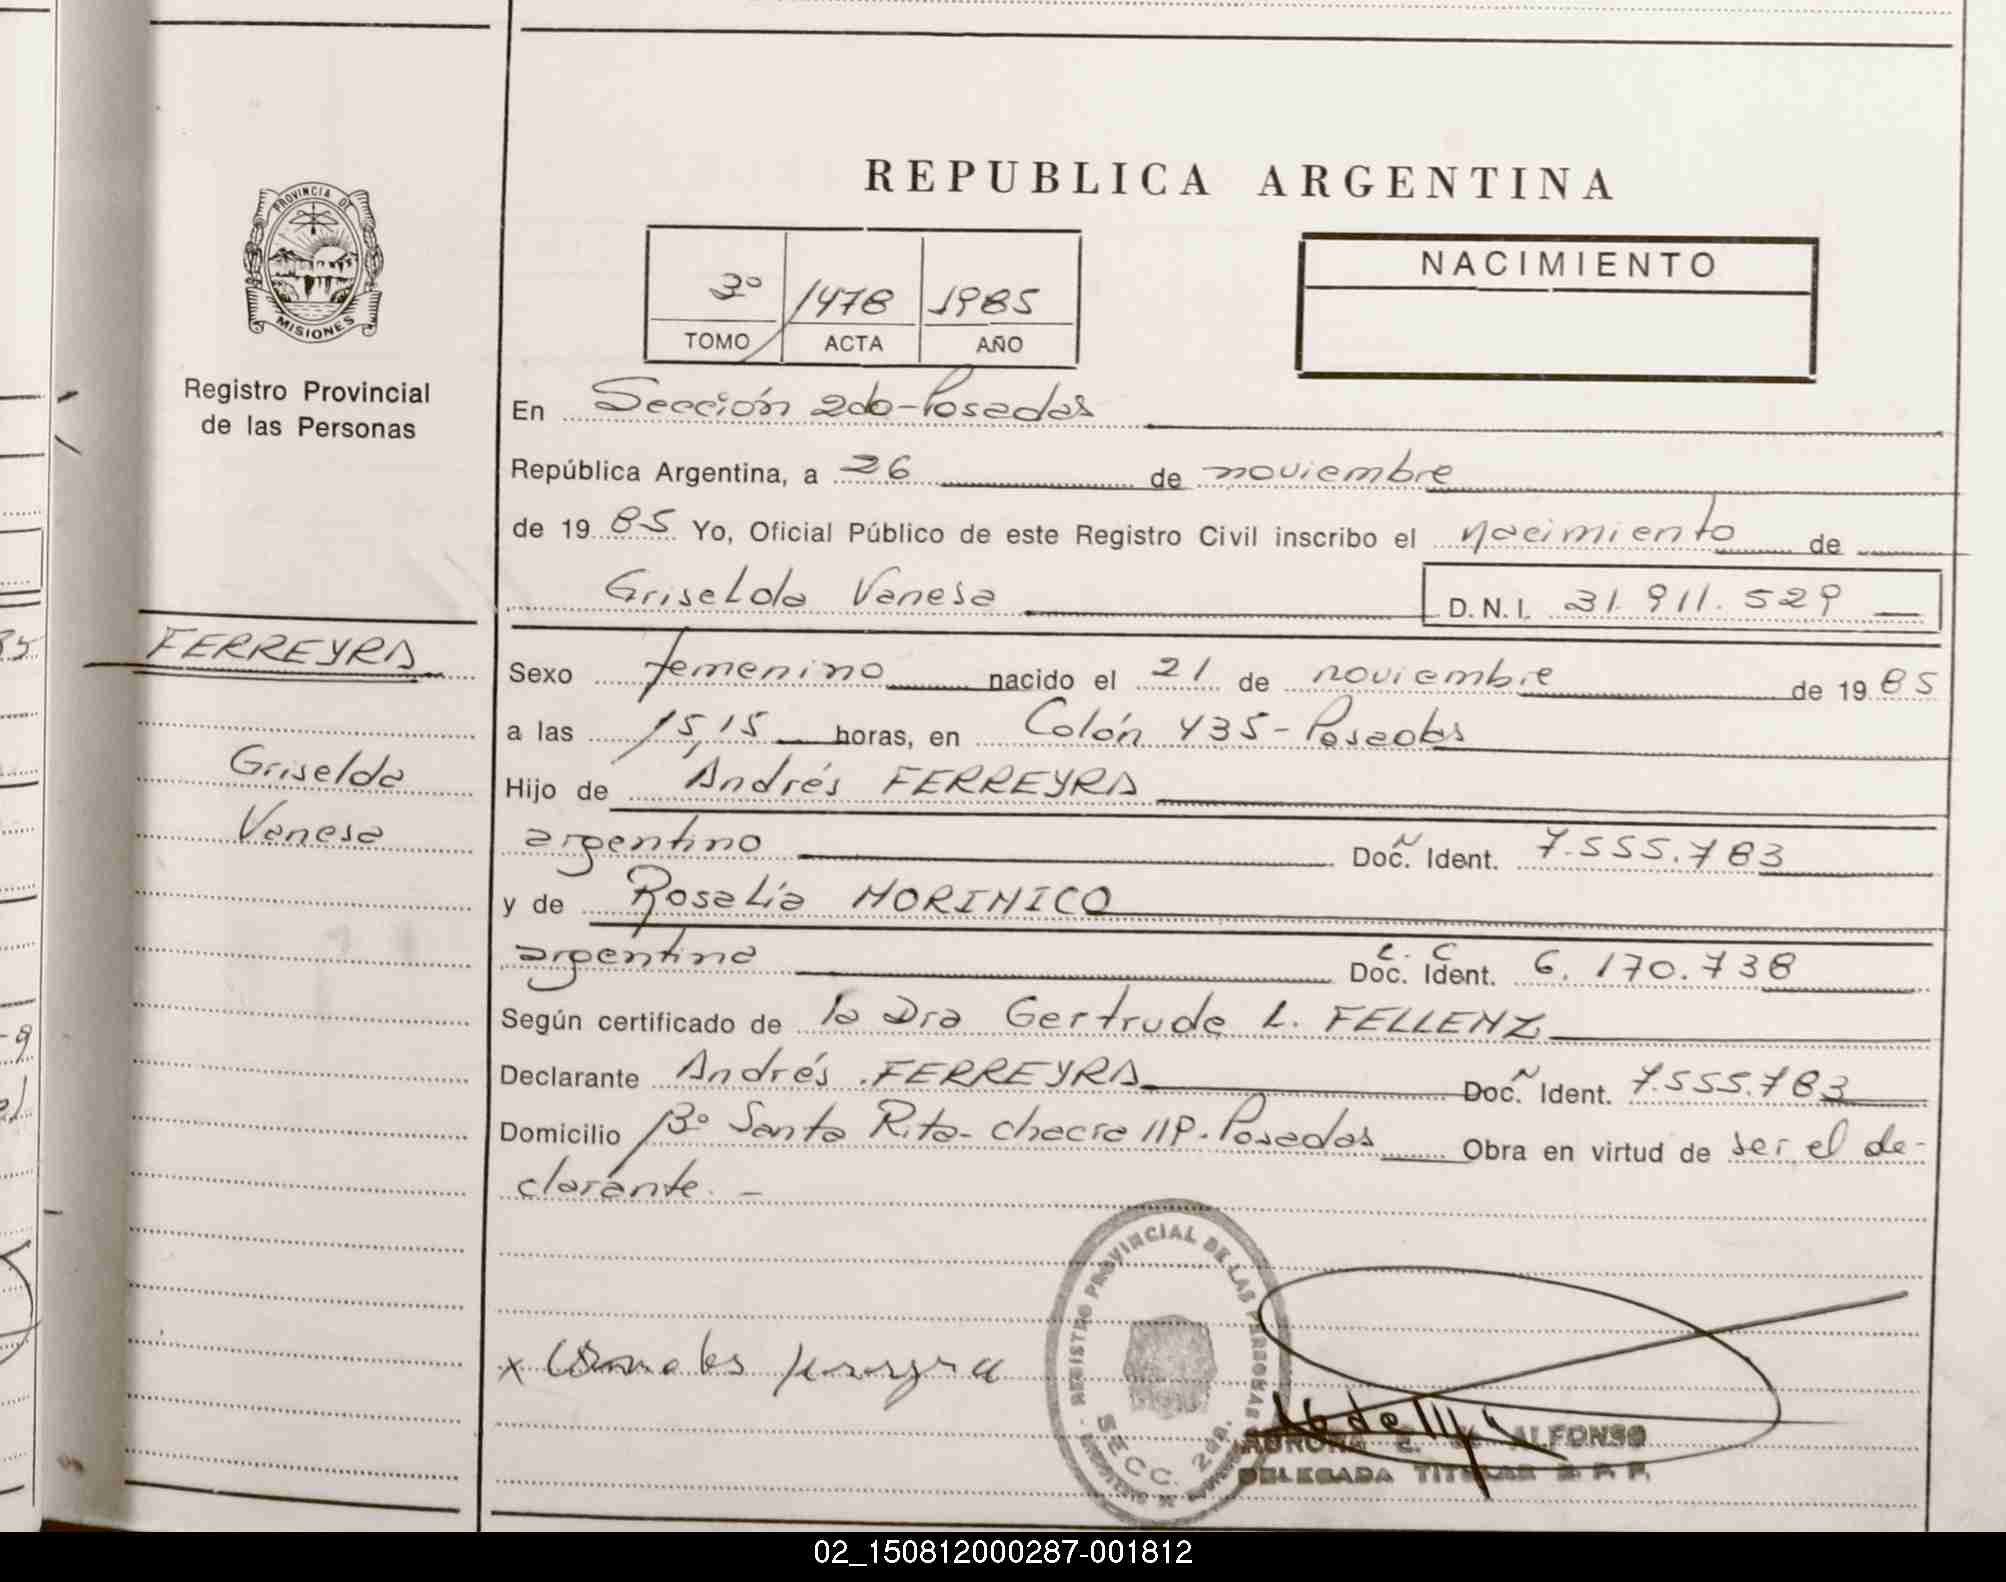 REPUBLICA ARGENTINA
PROVINCIA DE
MISIONES
Registro Provincial
de las Personas
3º 1478 1985
TOMO ACTA AÑO
NACIMIENTO
En Sección 2da-Posadas
República Argentina, a 26 de noviembre
de 19 85 Yo, Oficial Público de este Registro Civil inscribo el nacimiento de
Griselda Vanesa D.N.I. 31.911.529
FERREYRA
Griselda
Vanesa
Sexo femenino nacido el 21 de noviembre de 19 85
a las 15,15 horas, en Colón 435-Posadas
Hijo de Andrés FERREYRA
argentino Doc. Ident. 7.555.783
y de Rosalía MORINICO
argentina L. C Doc. Ident. 6.170.738
Según certificado de la Dra Gertrude L. FELLENZ
Declarante Andrés FERREYRA Doc. Ident. 7.555.783
Domicilio Bº Santa Rita-chacra 119-Posadas Obra en virtud de ser el de-
clarante.-
REGISTRO PROVINCIAL DE LAS PERSONAS
SECC. 2da.
ALFONSO
DELEGADA TITULAR
02_150812000287-001812